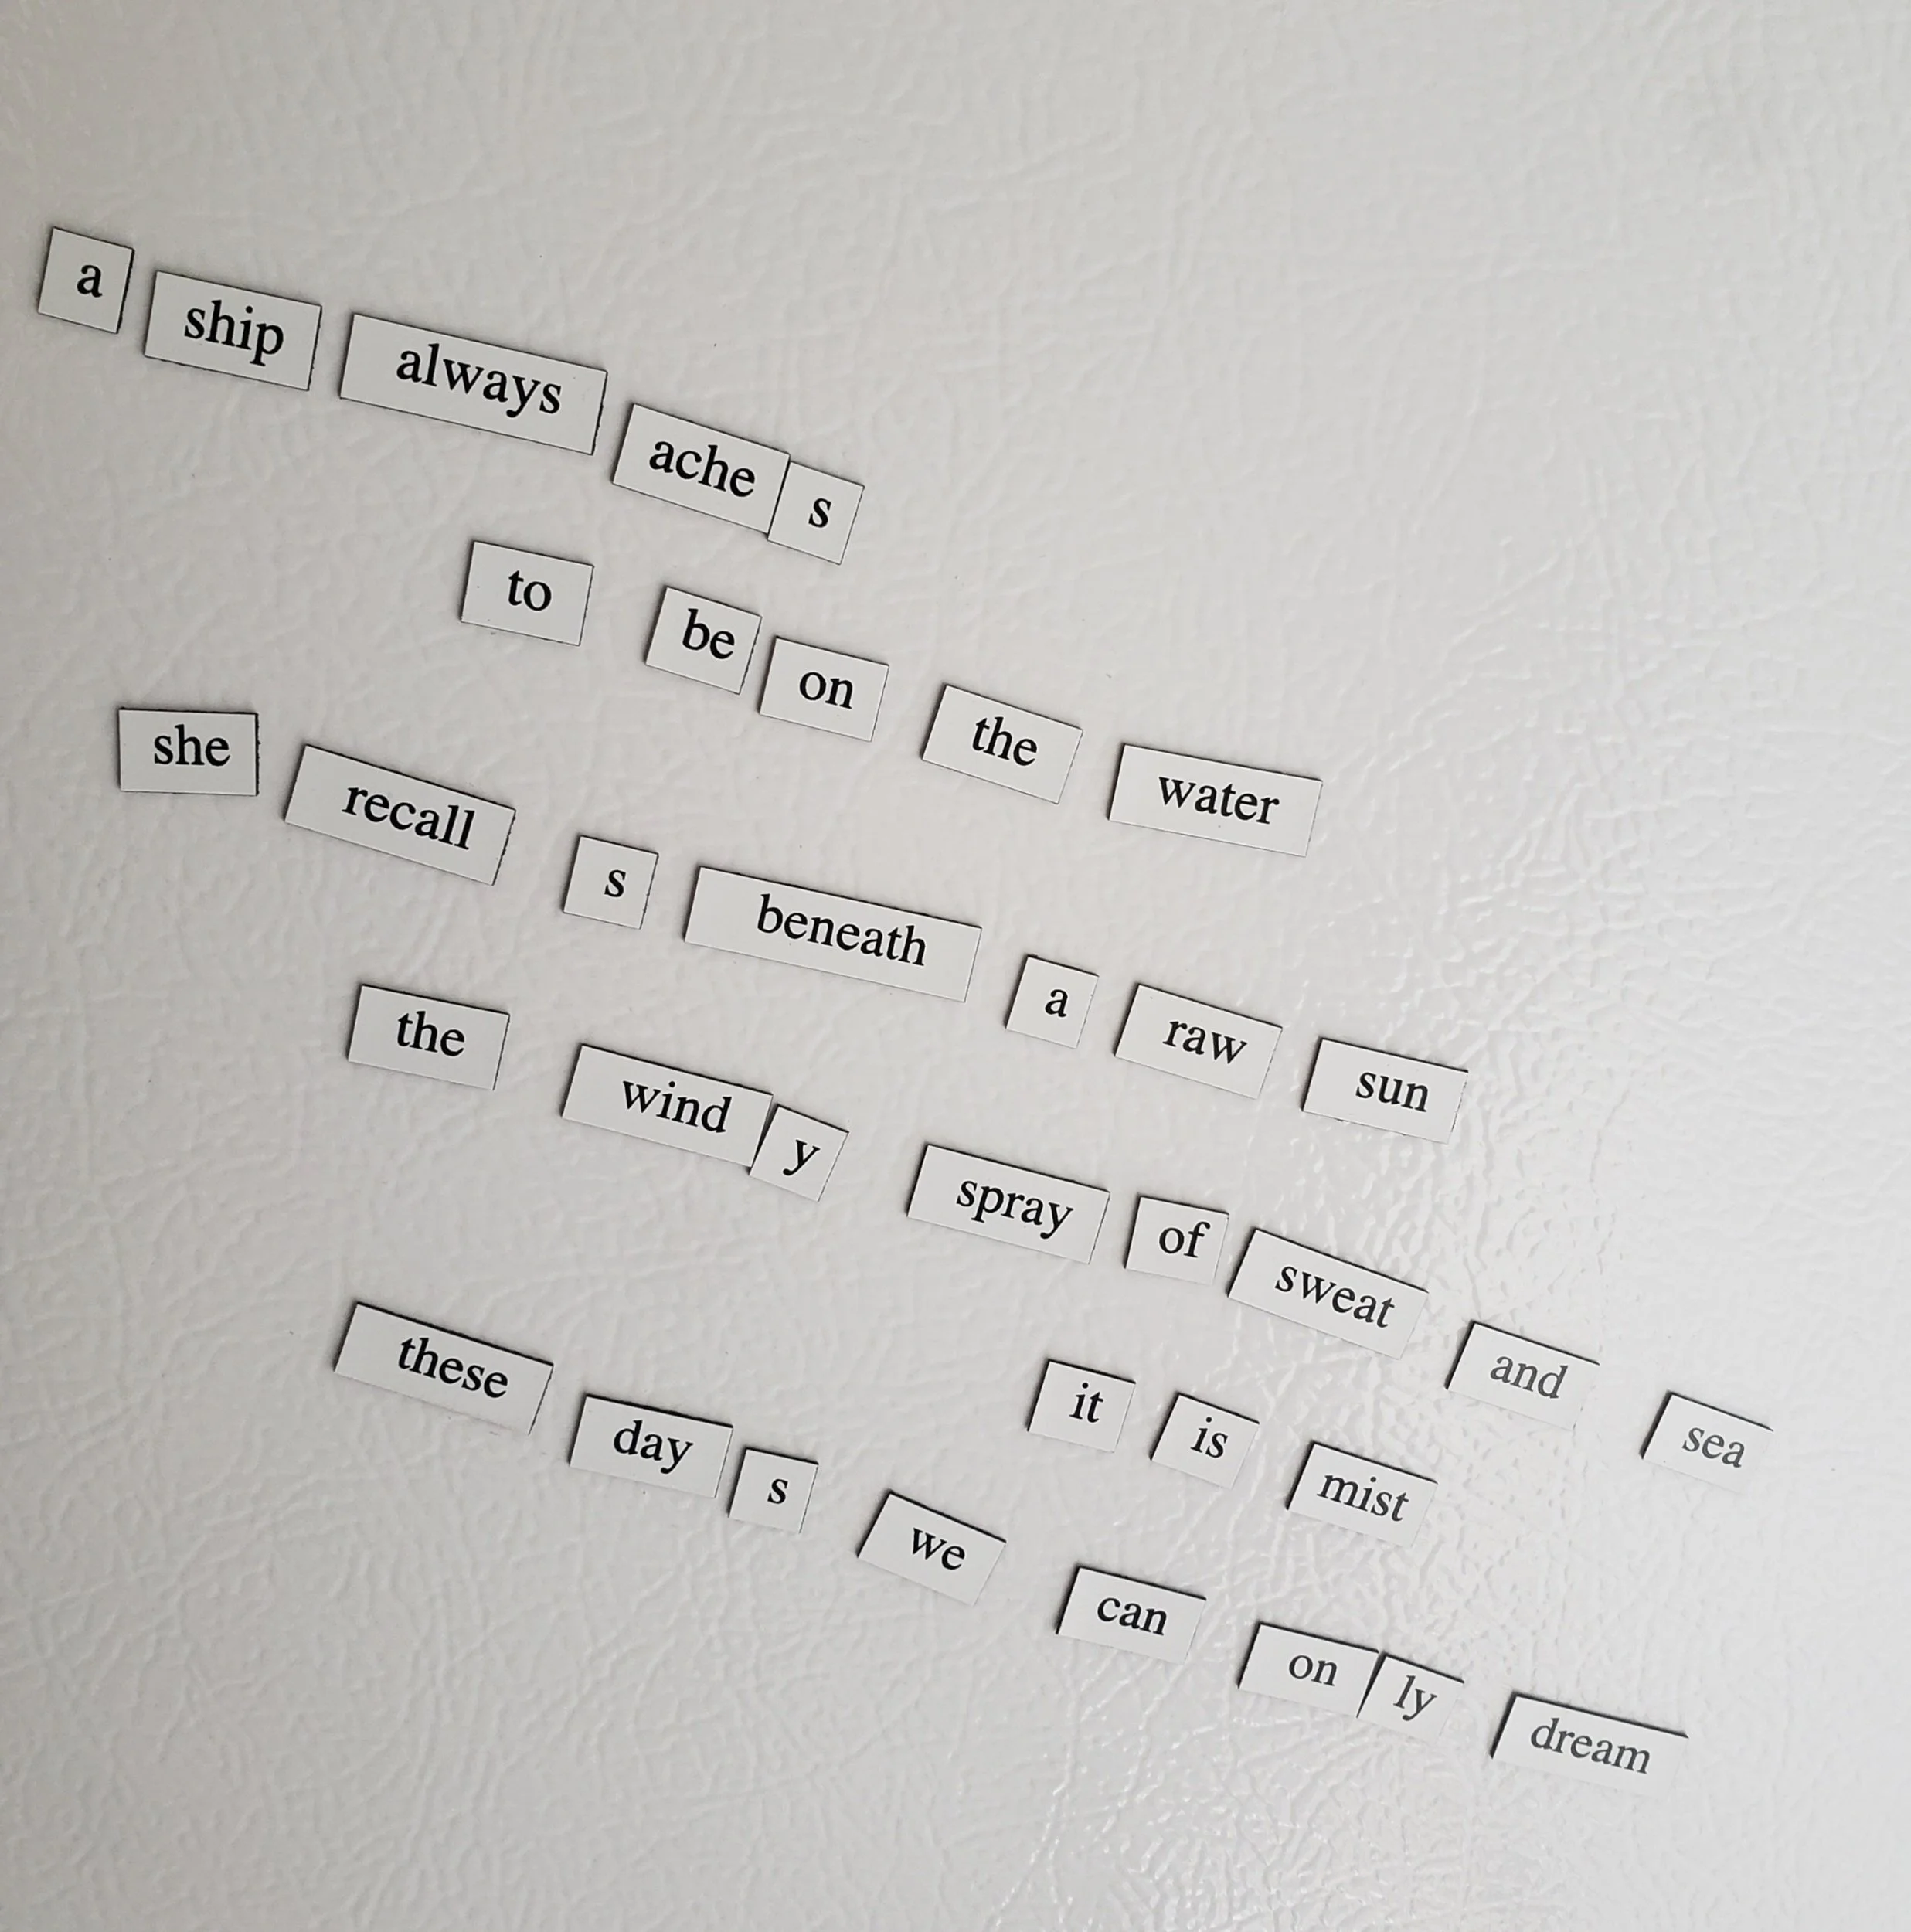 a ship always ache s
to be on the water
she recall s beneath a raw sun
the wind y spray of sweat and sea
it is mist
these day s we can on ly dream